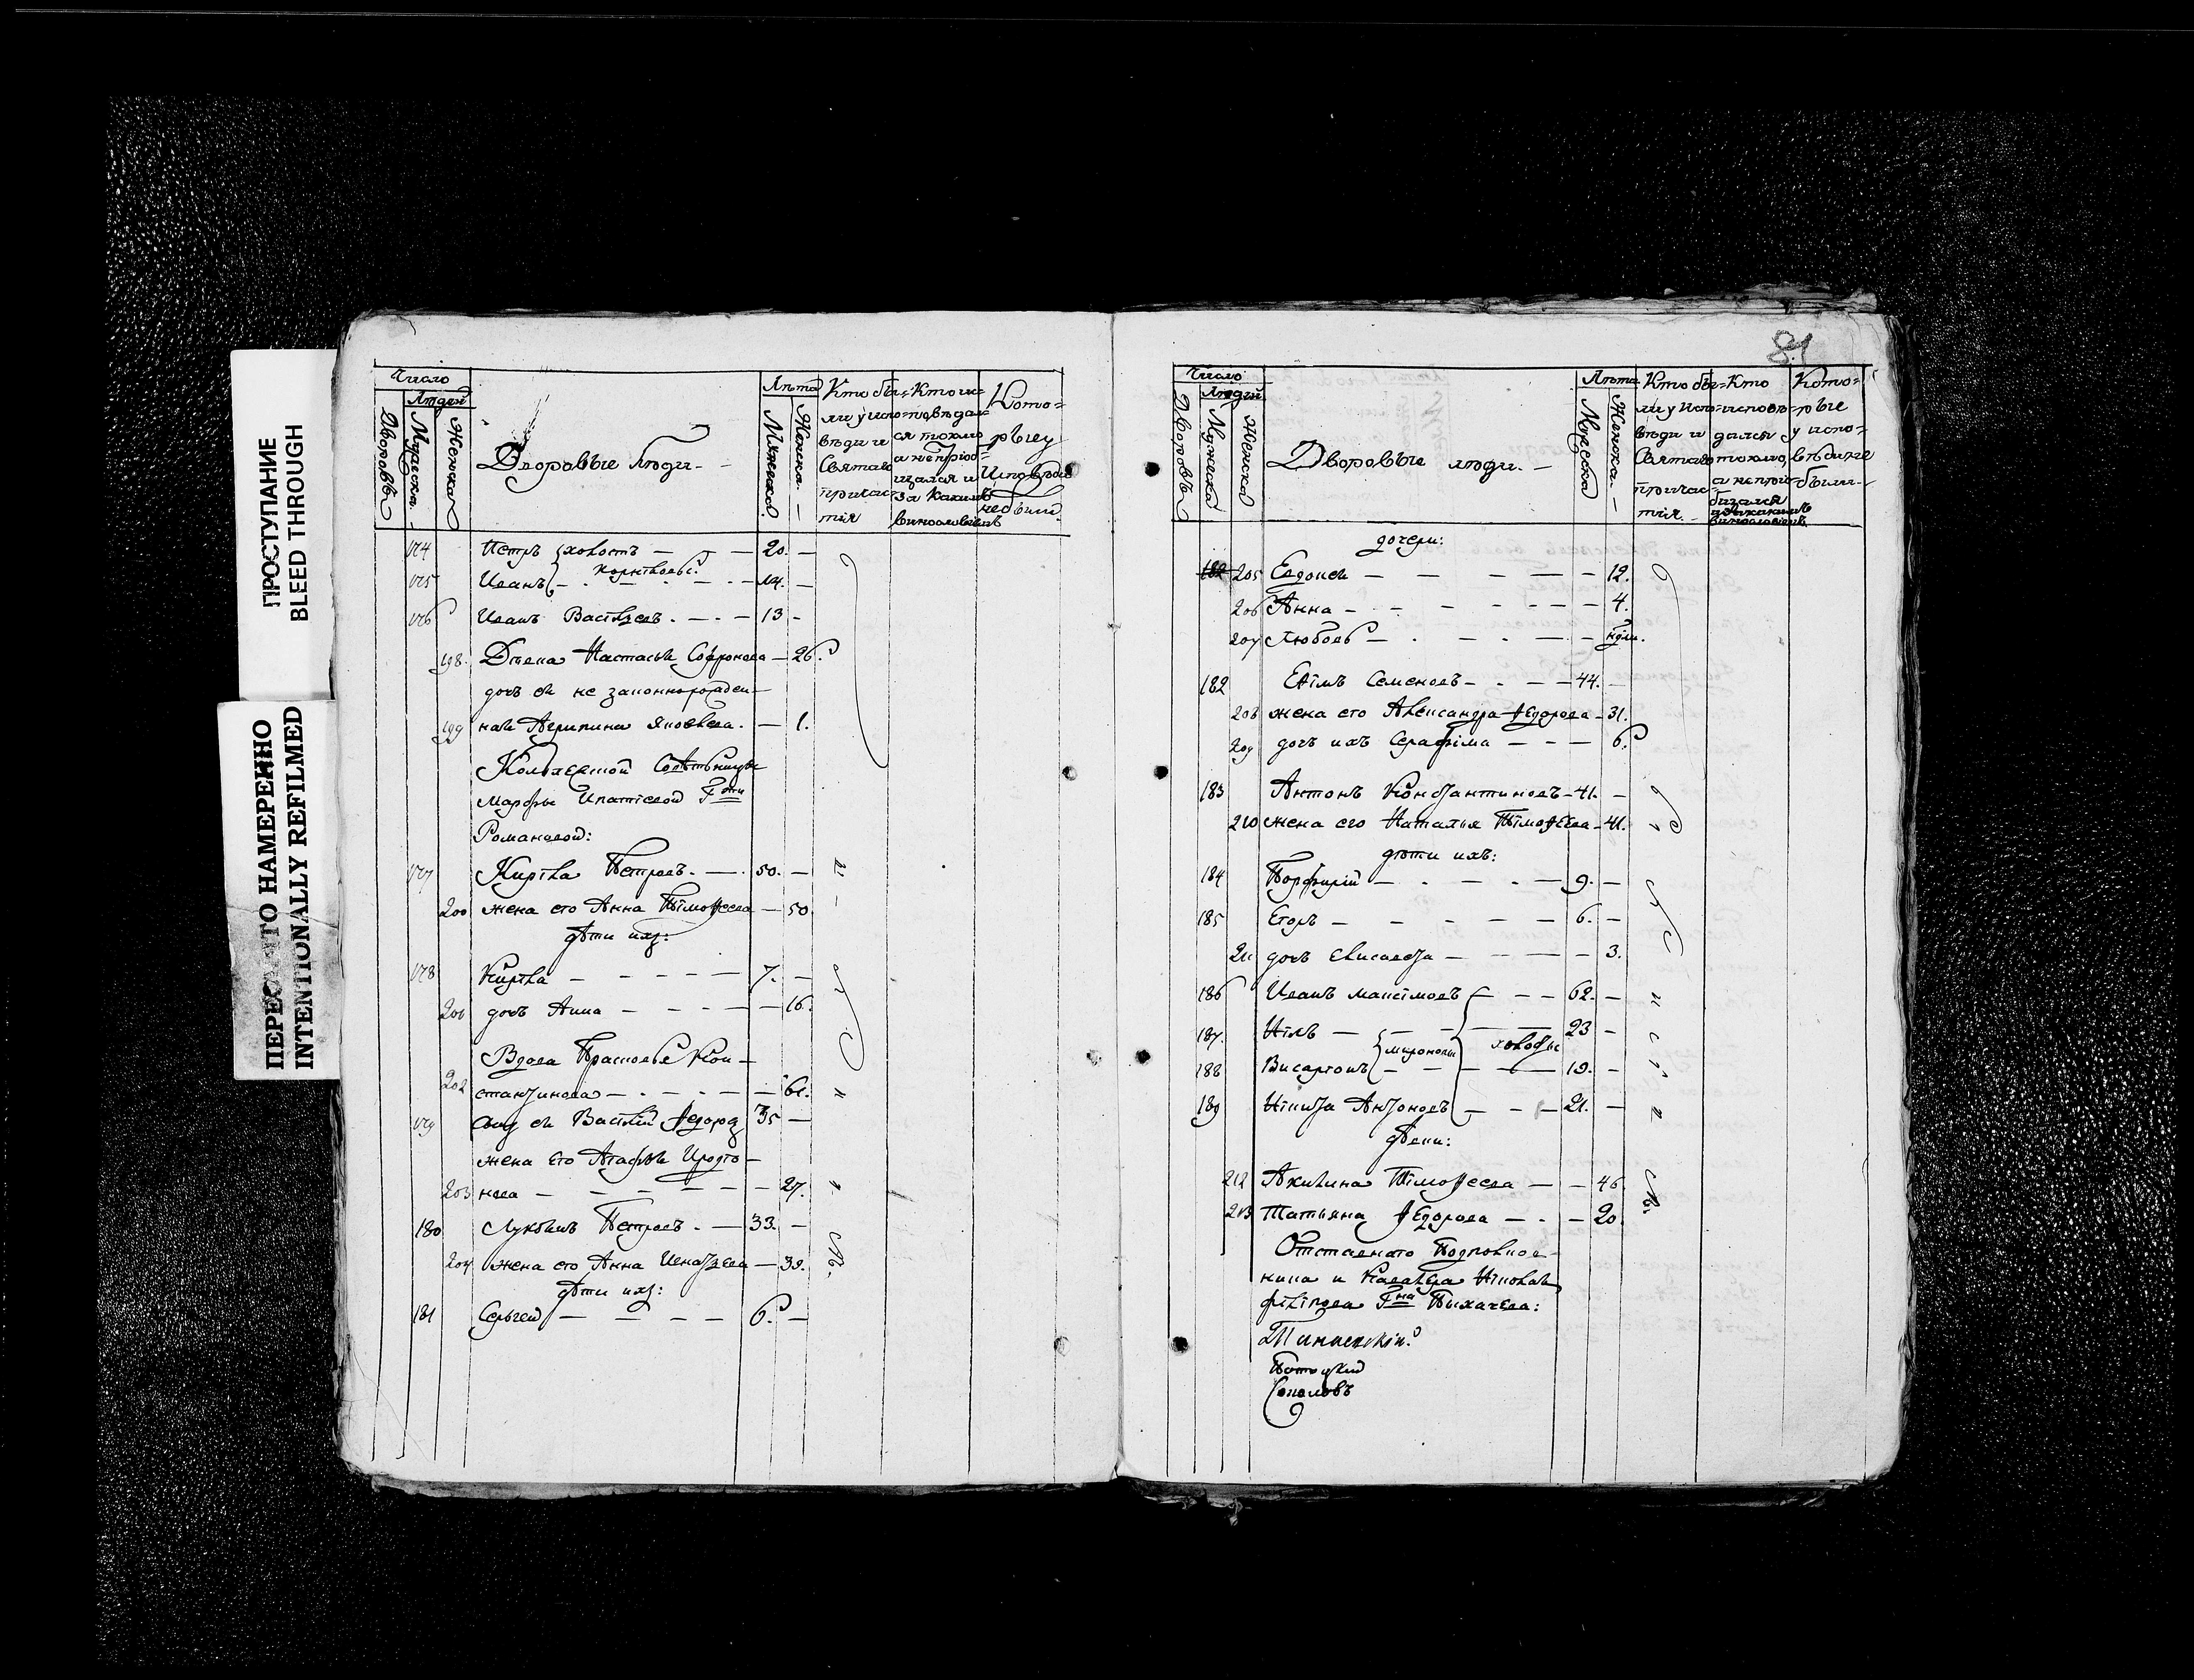 ПРОСТУПАНИЕ
BLEED THROUGH
ПЕРЕСНЯТО НАМЕРЕННО
INTENTIONALLY REFILMED
Число
Людей
Дворовъ
Мужеска
Женска
Дворовые люди
Лѣта
Мужеска
Женска
Кто бы-
ли у испо-
вѣди и
Святаго
причас-
тія
Кто ис-
повѣдал-
ся токмо
а не пріоб-
щался и
за какимъ
винословіемъ
Кото-
рые у
Исповѣди
не были
174 Петръ холостъ — 20. —
175 Иванъ — 14. —
176 Иванъ Васільевъ — 13 —
198. Дѣвка Настасья Софронова — 26.
дочь ея не законнорожден-
199 ная Агрипина Яковлева. — 1.
Коллежской Совѣтницы
Марфы Ипатіевой Гжи
Романовой:
177 Киріла Петровъ. — 50. —
200 жена его Анна Тімоѳеева — 50.
дѣти ихъ:
178 Киріла — 7. —
201 дочь Анна — 16.
Вдова Прасковья Кон-
202 стантинова — 61.
179 сынъ ея Васілій Ѳедоровъ 35 —
жена его Агафья Иродіо-
203 нова — 27.
180 Лукьянъ Петровъ. — 33. —
204 жена его Анна Игнатьева — 39.
дѣти ихъ:
181 Сергей — 6. —
81
Число
Людей
Дворовъ
Мужеска
Женска
Дворовые люди. —
Лѣта
Мужеска
Женска
Кто бы-
ли у Испо-
вѣди и
Святаго
причас-
тія
Кто
исповѣ-
дался
токмо,
а не прі-
общался
Кото-
рые
у испо-
вѣди не
были
дочери:
205 Евдокея — 12.
206 Анна — 4.
207 Любовь — нѣд.
182 Ефімъ Семеновъ — 44. —
208 жена его Александра Ѳедорова — 31.
209 дочь ихъ Серафіма — 6.
183 Антонъ Константиновъ — 41. —
210 жена его Наталья Тімоѳеева — 41.
дѣти ихъ:
184 Порфирій — 9. —
185 Егоръ — 6. —
211 дочь Елисавета — 3.
186 Иванъ Максімовъ — 62. —
187. Нілъ — 23 —
Мироновы холосты
188 Висаріонъ — 19. —
189 Нікита Антоновъ — 21. —
дѣвки:
212 Акилина Тімоѳеева — 46
213 Татьяна Ѳедорова — 20
Отставнаго Подполков-
ника и Кавалера Ніколая
Філіпова Гна Пыхачева:
Потоцкій
Соколовъ